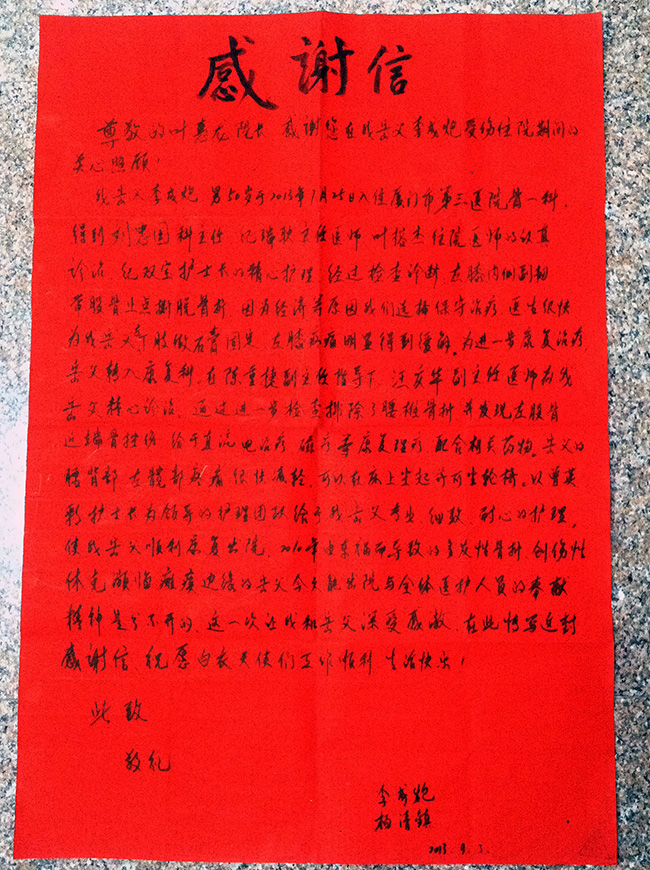 感谢信
尊敬的叶惠龙院长 感谢您在我岳父李成炮受伤住院期间的
关心照顾!
我岳父李成炮 男50岁于2013年7月25日入住厦门市第三医院骨一科,
得到刘忠国科主任 纪 主任医师 叶榕杰住院医师的认真
诊治 纪双宝护士长的精心护理 经过检查诊断,左膝内侧副韧
带股骨止点撕脱骨折,因为经济等原因我们选择保守治疗,医生很快
为我岳父下肢做石膏固定 左膝疼痛明显得到缓解。为进一步康复治疗
岳父转入康复科,在陈重捷副主任指导下,汪安华副主任医师为我
岳父精心诊治,通过进一步检查排除了腰椎骨折并发现左股骨
远端骨挫伤 给于直流电治疗 磁疗等康复理疗 配合相关药物。岳父的
腰背部,左髋部疼痛很快减轻,可以在床上坐起并可坐轮椅。以曾英
彩护士长为领导的护理团队给予我岳父专业,细致,耐心的护理,
使我岳父顺利康复出院,2010年由车祸而导致的多发性骨折,创伤性
休克濒临瘫痪边缘的岳父今天能出院与全体医护人员的奉献
精神是分不开的,这一次让我和岳父深受感激,在此特写这封
感谢信,祝愿白衣天使们工作顺利 生活快乐!
此致
敬礼
李成炮
柏清镇
2013.9.3.